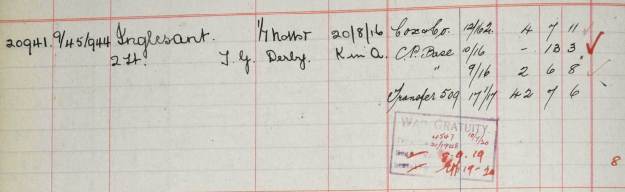 20941. 9/45/944 Inglesant. 1/7 Notts 20/8/16 Cox & Co. 12/162. 4 7 11
2 Lt. T. G. Derby. K in A. C.P. Base 10/16 - 13 3
" 9/16 2 6 8
Transfer 509 17/1/17 42 7 6
WAR GRATUITY
8.9.19
8